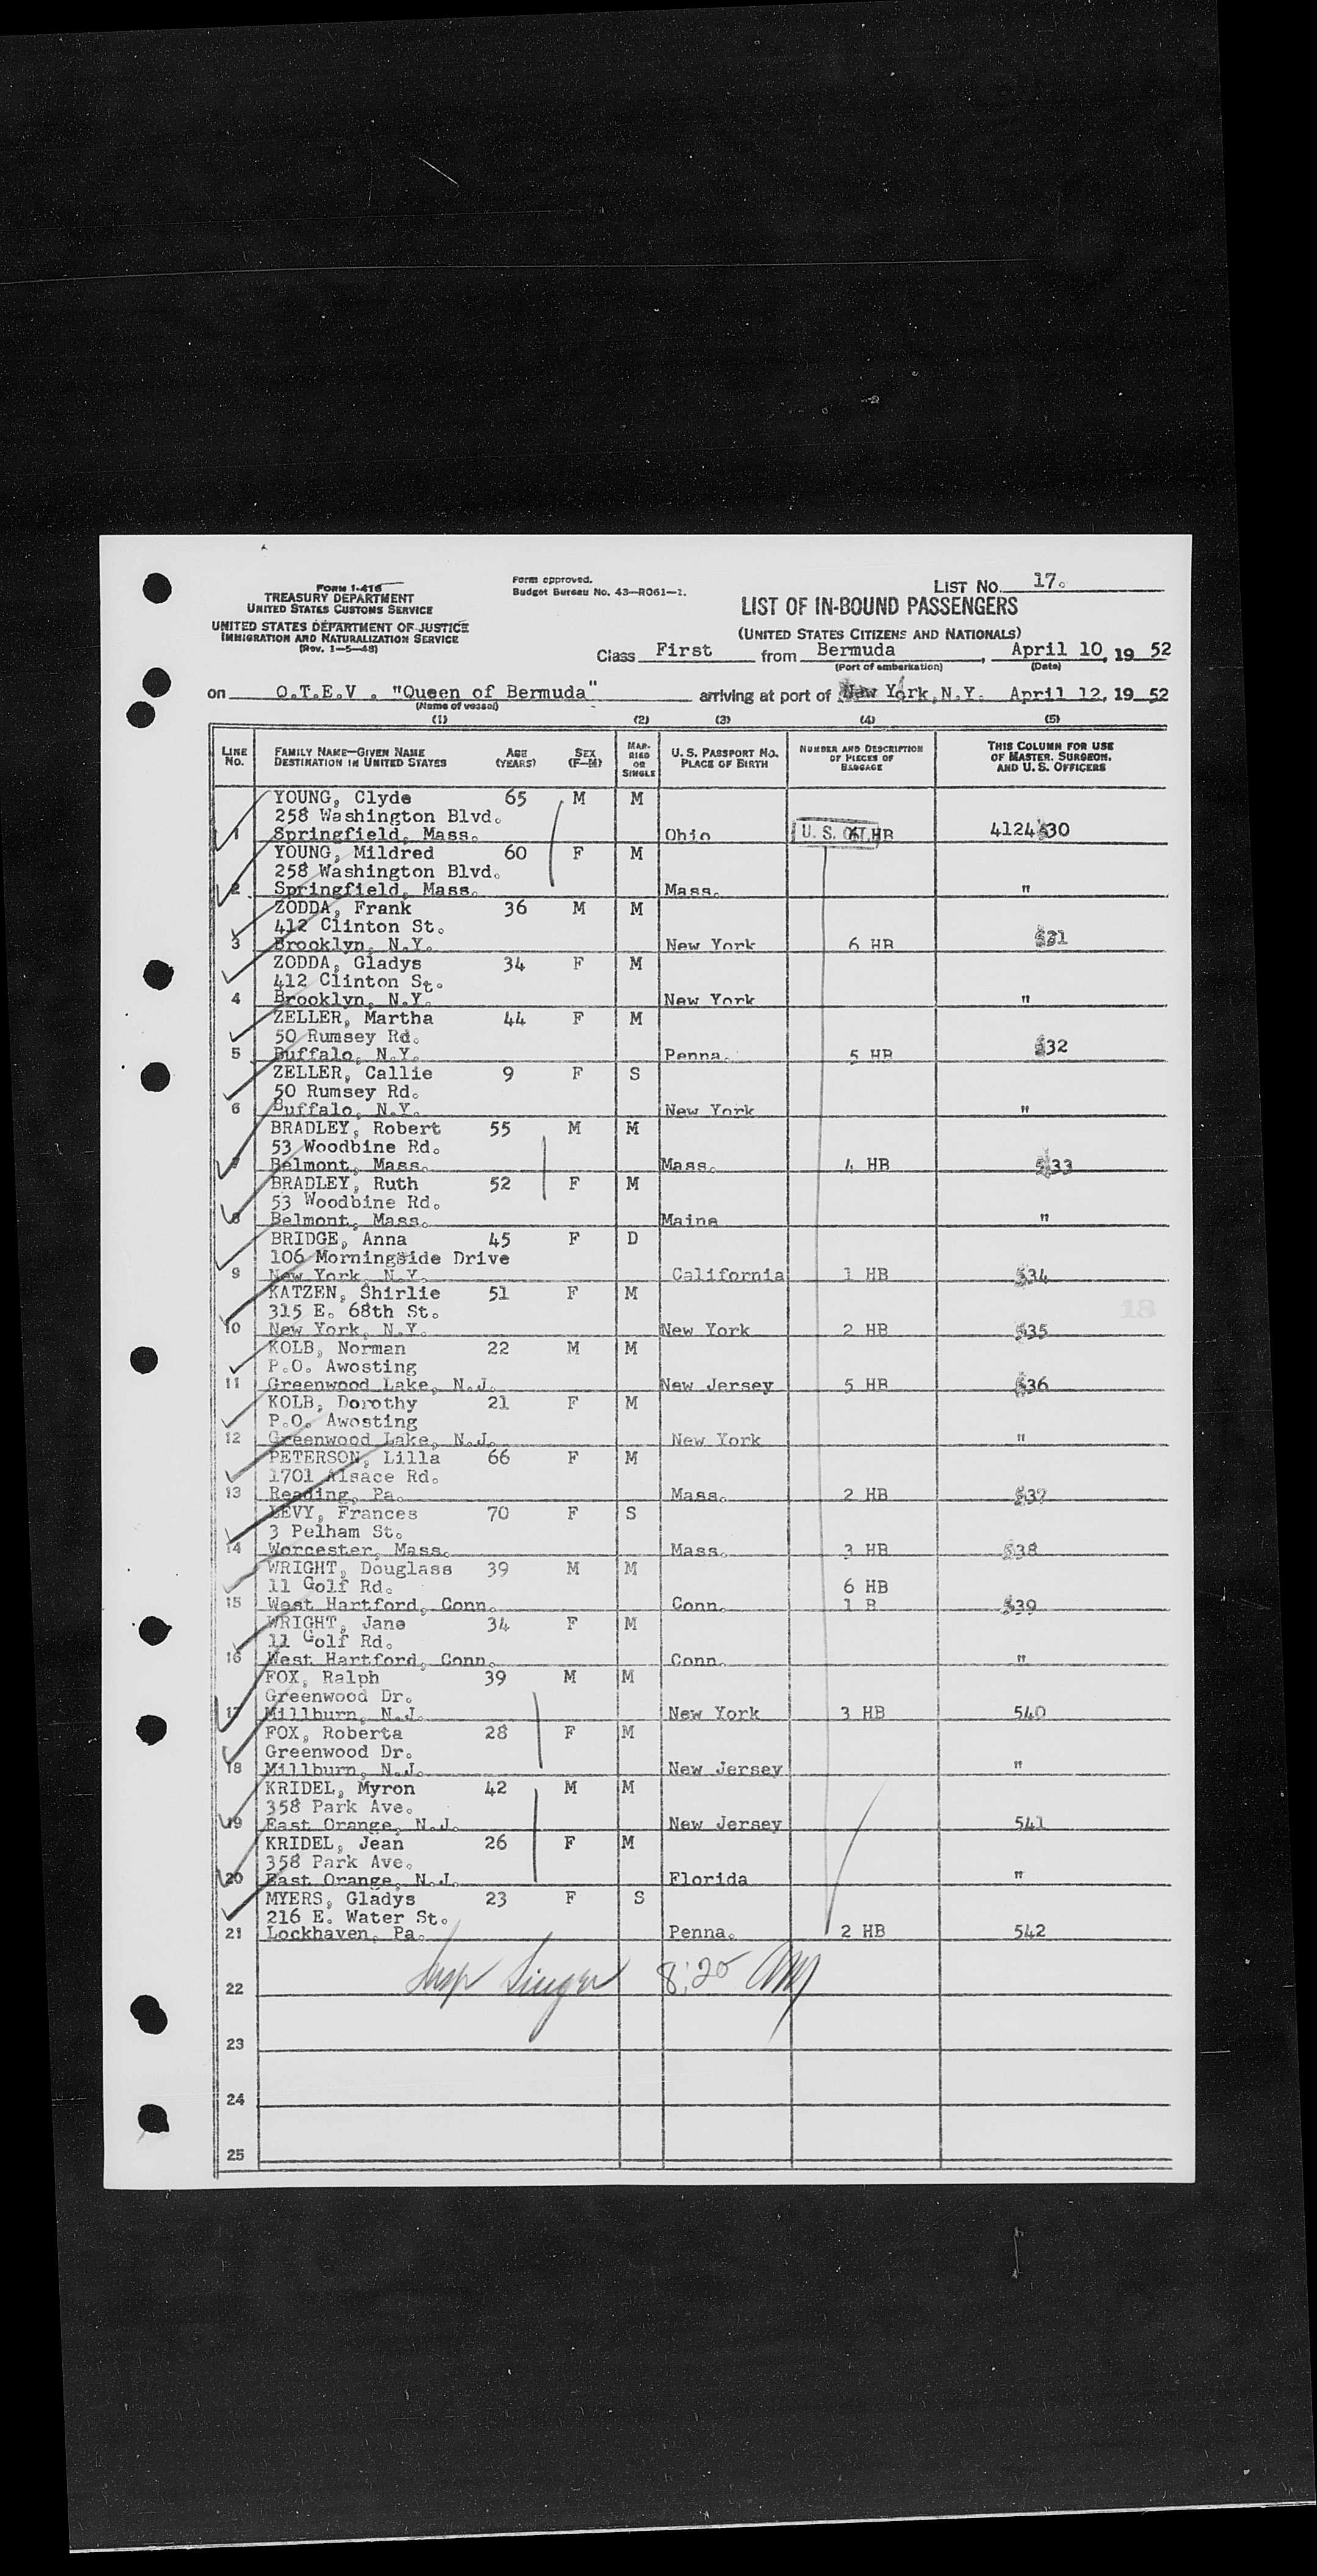 FORM I-416
TREASURY DEPARTMENT
UNITED STATES CUSTOMS SERVICE
UNITED STATES DEPARTMENT OF JUSTICE
IMMIGRATION AND NATURALIZATION SERVICE
(Rev. 1-5-48)
Form approved.
Budget Bureau No. 43-R061-1.
LIST No. 17.
LIST OF IN-BOUND PASSENGERS
(UNITED STATES CITIZENS AND NATIONALS)
Class First from Bermuda, April 10, 19 52
(Port of embarkation) (Date)
on Q.T.E.V. "Queen of Bermuda" arriving at port of New York, N.Y. April 12, 19 52
(Name of vessel)
(1) (2) (3) (4) (5)
LINE NO. FAMILY NAME—GIVEN NAME DESTINATION IN UNITED STATES AGE (YEARS) SEX (F-M) MARRIED OR SINGLE U. S. PASSPORT NO. PLACE OF BIRTH NUMBER AND DESCRIPTION OF PIECES OF BAGGAGE THIS COLUMN FOR USE OF MASTER, SURGEON, AND U. S. OFFICERS
YOUNG, Clyde 65 M M
258 Washington Blvd.
1 Springfield, Mass. Ohio U. S. HB 4124530
YOUNG, Mildred 60 F M
258 Washington Blvd.
2 Springfield, Mass. Mass. "
ZODDA, Frank 36 M M
412 Clinton St.
3 Brooklyn, N.Y. New York 6 HB 531
ZODDA, Gladys 34 F M
412 Clinton St.
4 Brooklyn, N.Y. New York "
ZELLER, Martha 44 F M
50 Rumsey Rd.
5 Buffalo, N.Y. Penna. 5 HB 532
ZELLER, Callie 9 F S
50 Rumsey Rd.
6 Buffalo, N.Y. New York "
BRADLEY, Robert 55 M M
53 Woodbine Rd.
7 Belmont, Mass. Mass. 4 HB 533
BRADLEY, Ruth 52 F M
53 Woodbine Rd.
8 Belmont, Mass. Maine "
BRIDGE, Anna 45 F D
106 Morningside Drive
9 New York, N.Y. California 1 HB 534
KATZEN, Shirlie 51 F M
315 E. 68th St.
18
10 New York, N.Y. New York 2 HB 535
KOLB, Norman 22 M M
P.O. Awosting
11 Greenwood Lake, N.J. New Jersey 5 HB 536
KOLB, Dorothy 21 F M
P.O. Awosting
12 Greenwood Lake, N.J. New York "
PETERSON, Lilla 66 F M
1701 Alsace Rd.
13 Reading, Pa. Mass. 2 HB 537
LEVY, Frances 70 F S
3 Pelham St.
14 Worcester, Mass. Mass. 3 HB 538
WRIGHT, Douglass 39 M M
11 Golf Rd. 6 HB
15 West Hartford, Conn. Conn. 1 B 539
WRIGHT, Jane 34 F M
11 Golf Rd.
16 West Hartford, Conn. Conn. "
FOX, Ralph 39 M M
Greenwood Dr.
17 Millburn, N.J. New York 3 HB 540
FOX, Roberta 28 F M
Greenwood Dr.
18 Millburn, N.J. New Jersey "
KRIDEL, Myron 42 M M
358 Park Ave.
19 East Orange, N.J. New Jersey 541
KRIDEL, Jean 26 F M
358 Park Ave.
20 East Orange, N.J. Florida "
MYERS, Gladys 23 F S
216 E. Water St.
21 Lockhaven, Pa. Penna. 2 HB 542
22 Insp Singer 8:20 AM
23
24
25